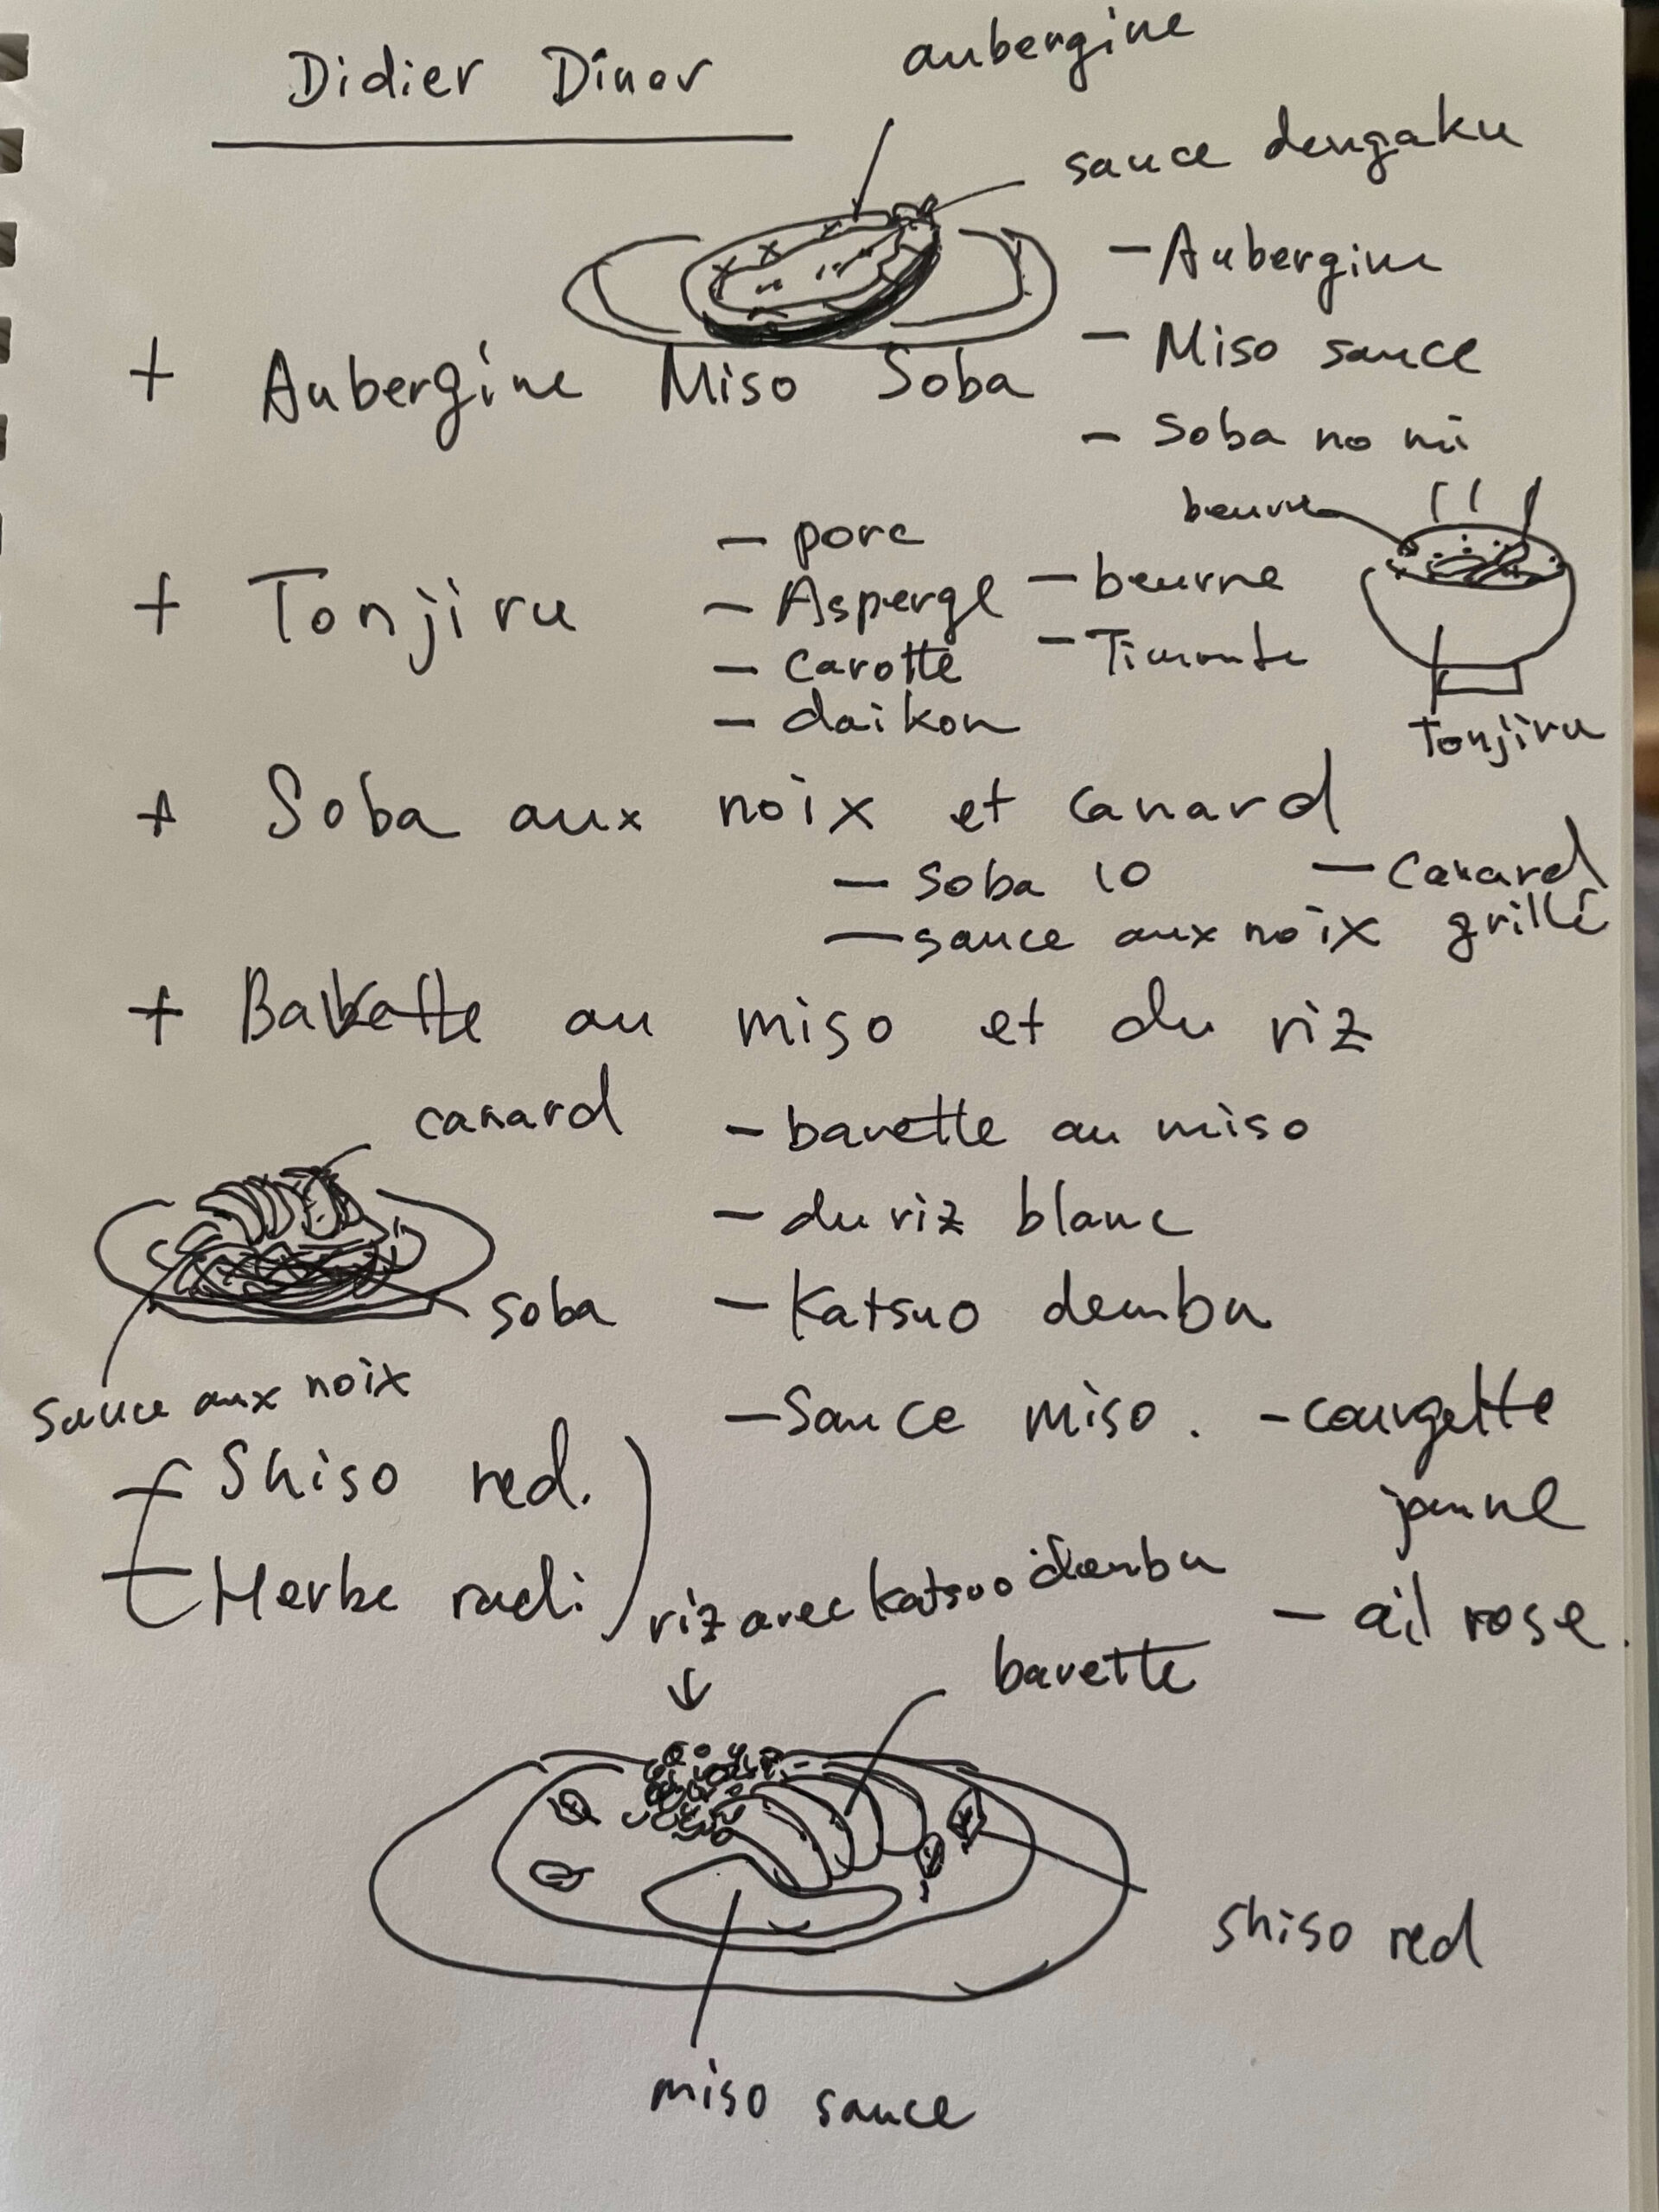 Didier Dinor
aubergine
sauce dengaku
- Aubergine
- Miso sauce
- Soba no mi
+ Aubergine Miso Soba
+ Tonjiru
- porc
- Asperge
- Carotte
- daikon
- beurre
beurre
Tonjiru
+ Soba aux noix et canard
- Soba 10
- sauce aux noix
- Canard
grillé
+ Bavette au miso et du riz
- bavette au miso
- du riz blanc
- Katsuo dembu
- Sauce miso.
- courgette
jaune
- ail rose.
canard
soba
sauce aux noix
+ Shiso red.
+ Herbe radi
riz avec katsuo dembu
↓
bavette
shiso red
miso sauce